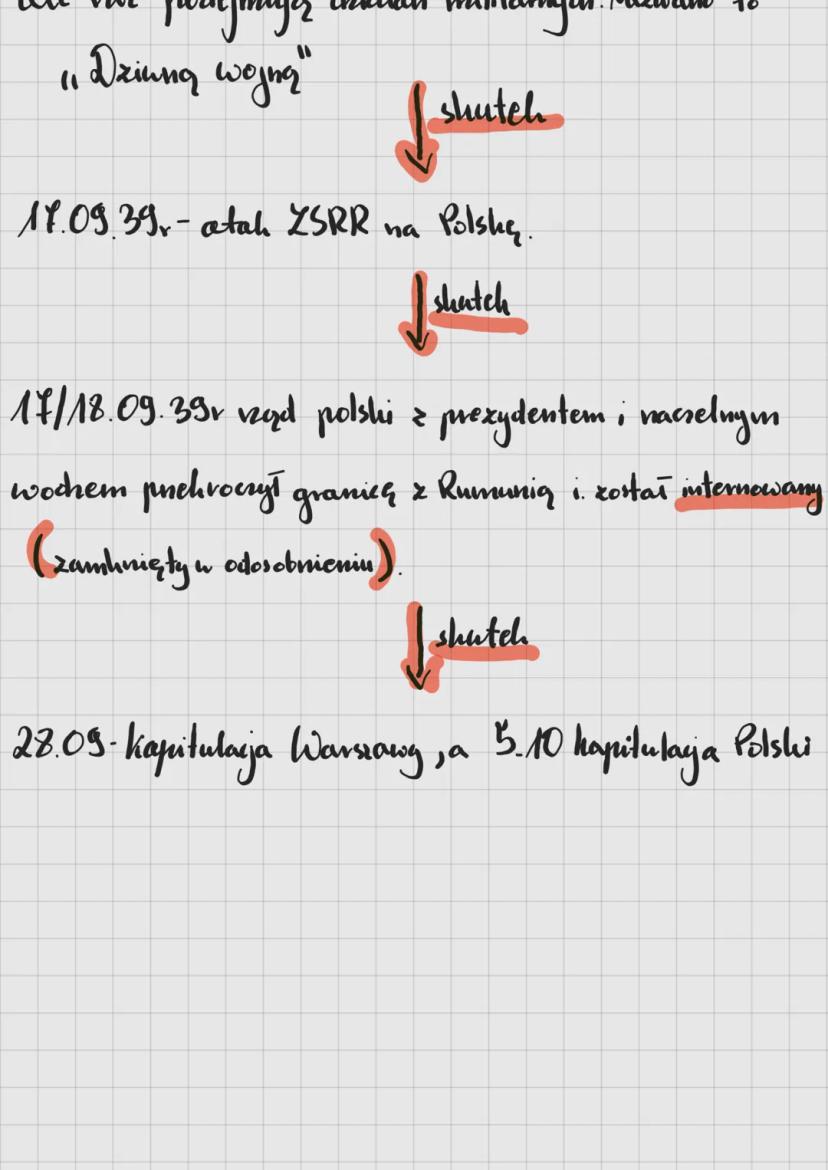 nie podejmują działań militarnych. Nazwano to
„Dziwną wojną"
skutek
17.09.39r - atak ZSRR na Polskę.
skutek
17/18.09.39r rząd polski z prezydentem i naczelnym
wodzem przekroczył granicę z Rumunią i został internowany
(zamknięty w odosobnieniu).
skutek
28.09 - kapitulacja Warszawy, a 5.10 kapitulacja Polski